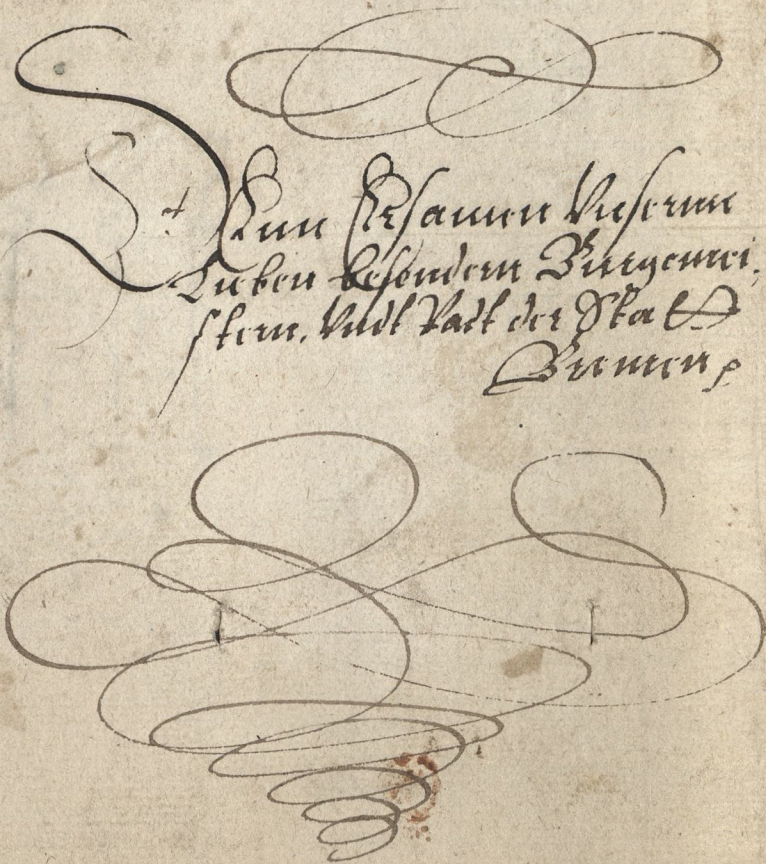 Denn Ersamen Unsernn
Lieben besondern Burgemei,
stern, Undt Radt der Stadt
Bremen